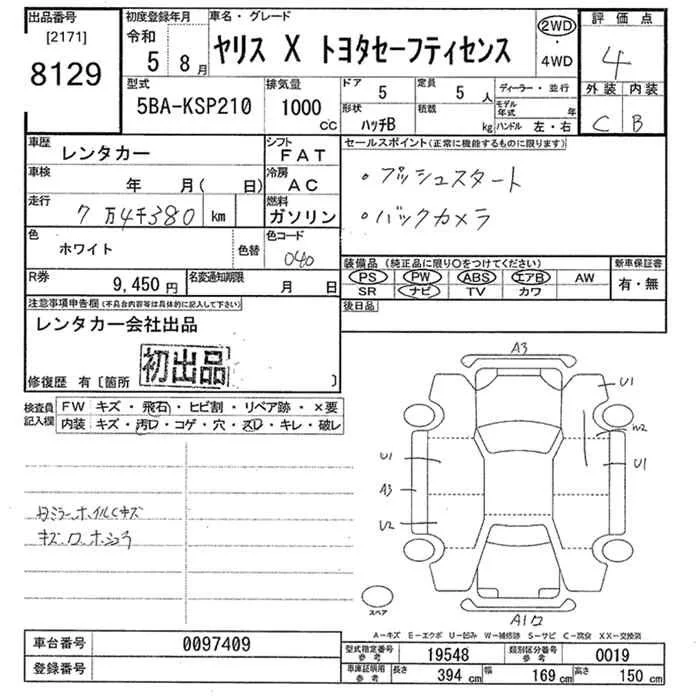 出品番号
[2171]
8129
初度登録年月
令和
5 8月
車名・グレード
ヤリス X トヨタセーフティセンス
2WD
・
4WD
評価点
4
外装 内装
C B
型式
5BA-KSP210
排気量
1000
CC
ドア
5
定員
5 人
形状
ハッチB
積載
kg
ディーラー・並行
モデル年式 年
ハンドル 左・右
車歴
レンタカー
シフト
FAT
車検
年 月( 日)
冷房
AC
走行
7万4千380 km
燃料
ガソリン
色
ホワイト
色替
色コード
040
R券
9,450円
名変通知期限
月 日
セールスポイント(正常に機能するものに限ります)
・プッシュスタート
・バックカメラ
装備品 (純正品に限り○をつけてください)
PS PW ABS エアB AW
SR ナビ TV カワ
新車保証書
有・無
後日品
注意事項申告欄(不具合内容等は具体的に記入して下さい)
レンタカー会社出品
初出品
修復歴 有〔箇所 〕
検査員記入欄
FW キズ・飛石・ヒビ割・リペア跡・×要
内装 キズ・汚レ・コゲ・穴・スレ・キレ・破レ
A3
U1
W2
U1
U1
A3
U2
スペア
A-キズ E-エクボ U-凹み W-補修跡 S-サビ C-腐食 XX-交換済
車台番号
0097409
登録番号
型式指定番号
参考
19548
類別区分番号
参考
0019
車庫証明用
参考
長さ 394 cm
幅 169 cm
高さ 150 cm